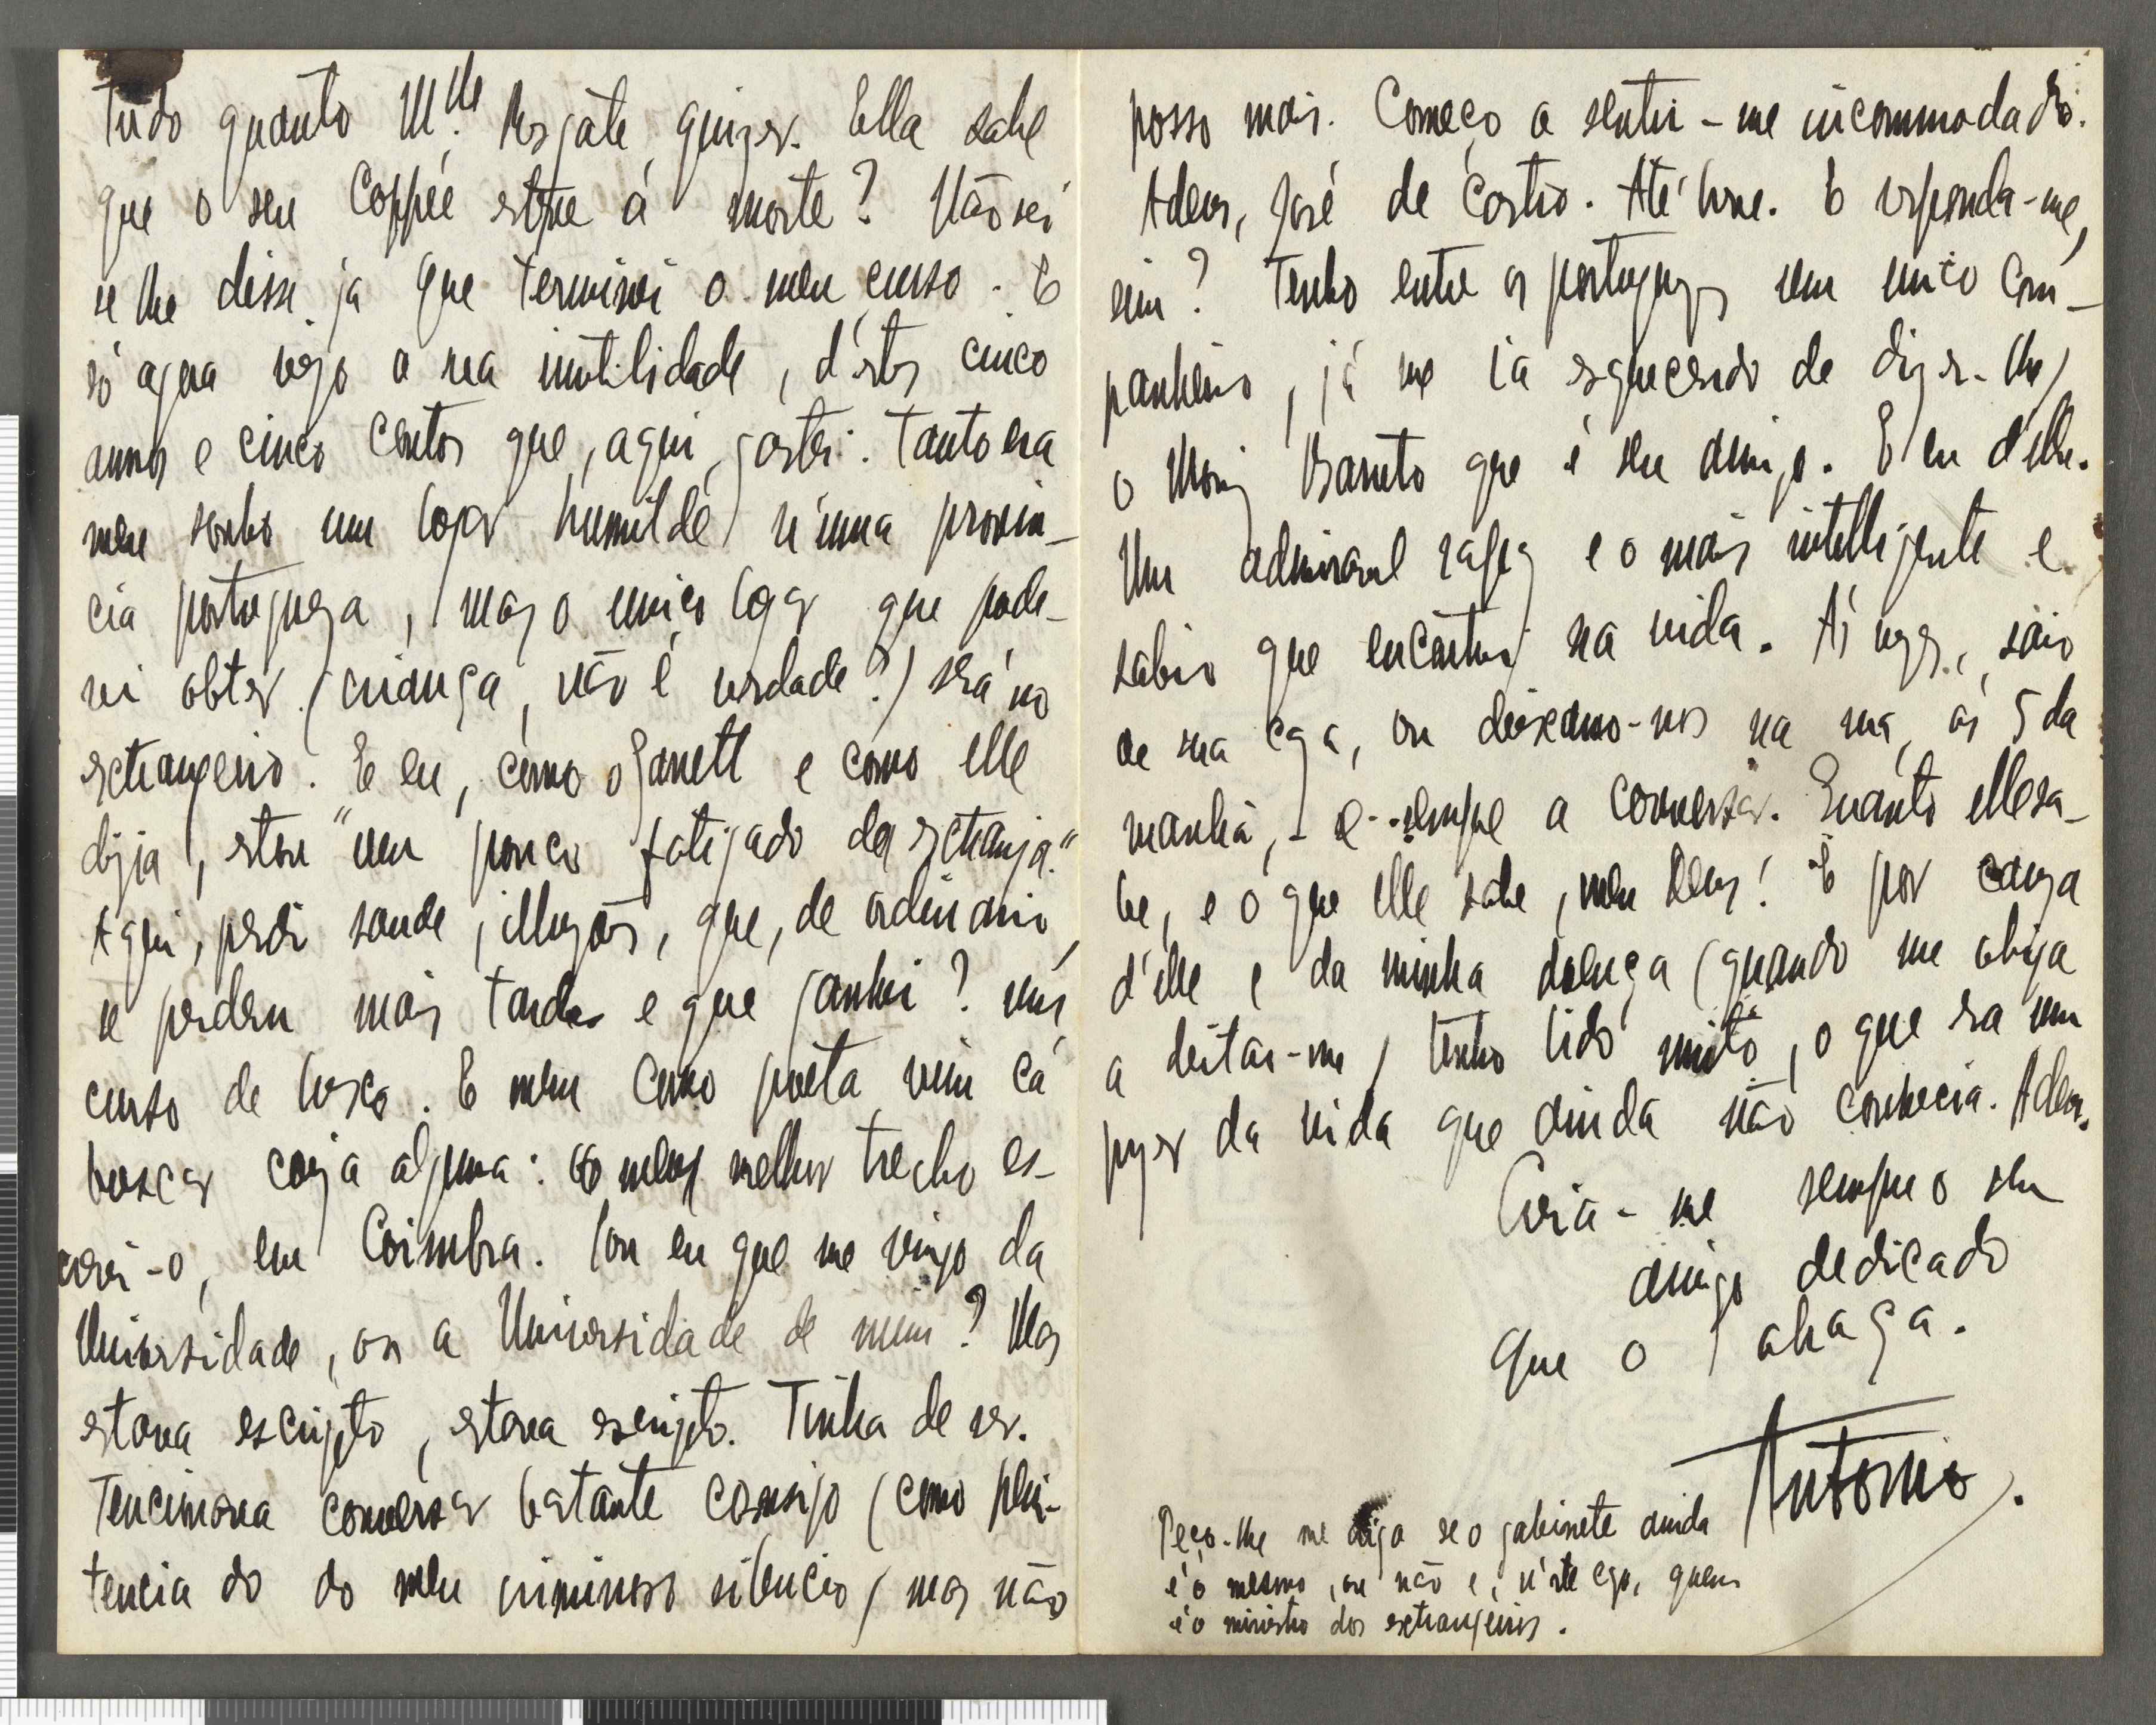 tudo quanto M.lle Resgate quizer. Ella sabe
que o seu Coppée esteve á morte? Não sei
se lhe disse já que terminei o meu curso. E
só agora vejo a sua inutilidade, d'estes cinco
annos e cinco contos que, aqui, gastei. Tanto era
meu sonho um logar humilde n'uma provin-
cia portugueza, mas o unico logar que pode-
rei obter (criança, não é verdade?) será no
extrangeiro. E eu, como o Garrett e como elle
dizia, estou "um pouco fatigado da extranja."
Aqui, perdi saude, illuzões, que, de ordinario,
se perdem mais tarde e que ganhei? um
curso de busca. E nem como poeta vim cá
buscar coiza alguma: o meu melhor trecho es-
crevi-o, em Coimbra. Sou eu que me vingo da
Universidade, ou a Universidade de mim? Mas
estava escripto, estava escripto. Tinha de ser.
Tencionava conversar bastante comsigo (como peni-
tencia do do meu criminoso silencio) mas não
posso mais. Começo a sentir-me incommodado.
Adeus, José de Castro. Até breve. E responda-me,
sim? Tenho entre os portuguezes um unico com-
panheiro, (já me ia esquecendo de dizer-lhe)
o Moniz Barreto que é seu amigo. E eu d'elle.
Um admiravel rapaz e o mais intelligente e
sabio que encontrei na vida. Ás vezes, saio
de sua caza, ou deixamo-nos na rua, ás 5 da
manhã, - e sempre a conversar. Quanto elle sa-
be, e o que elle sabe, meu Deus! E por cauza
d'elle e da minha doença (quando me obriga
a deitar-me) tenho lido muito, o que era um
prazer da vida que ainda não conhecia. Adeus.
Creia-me sempre o seu
amigo dedicado
que o abraça.
Antonio.
Peço-lhe me diga se o gabinete ainda
é o mesmo, ou não e, n'este cazo, quem
é o ministro dos extrangeiros.